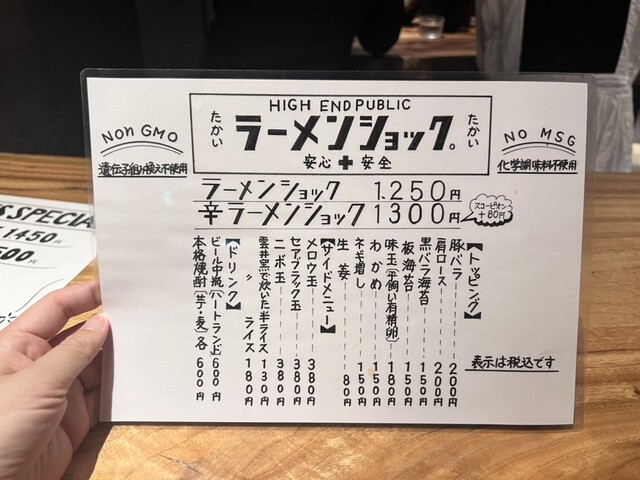 HIGH END PUBLIC
たかい
ラーメンショック。
たかい
安心✚安全
Non GMO
遺伝子組み換え不使用
No MSG
化学調味料不使用
ラーメンショック 1.250円
辛ラーメンショック 1300円
スコーピオン
+80円
【トッピング】
豚バラ 200円
肩ロース 200円
黒バラ海苔 150円
板海苔 150円
味玉(平飼い有精卵) 180円
わかめ 150円
ネギ増し 150円
生姜 80円
【サイドメニュー】
メロウ玉 380円
セアブラック玉 380円
ニボ玉 380円
雲井窯で炊いた半ライス 130円
〃 ライス 180円
【ドリンク】
ビール中瓶(ハートランド) 600円
本格焼酎(芋・麦)各 600円
表示は税込です
SPECIAL
1450
00円